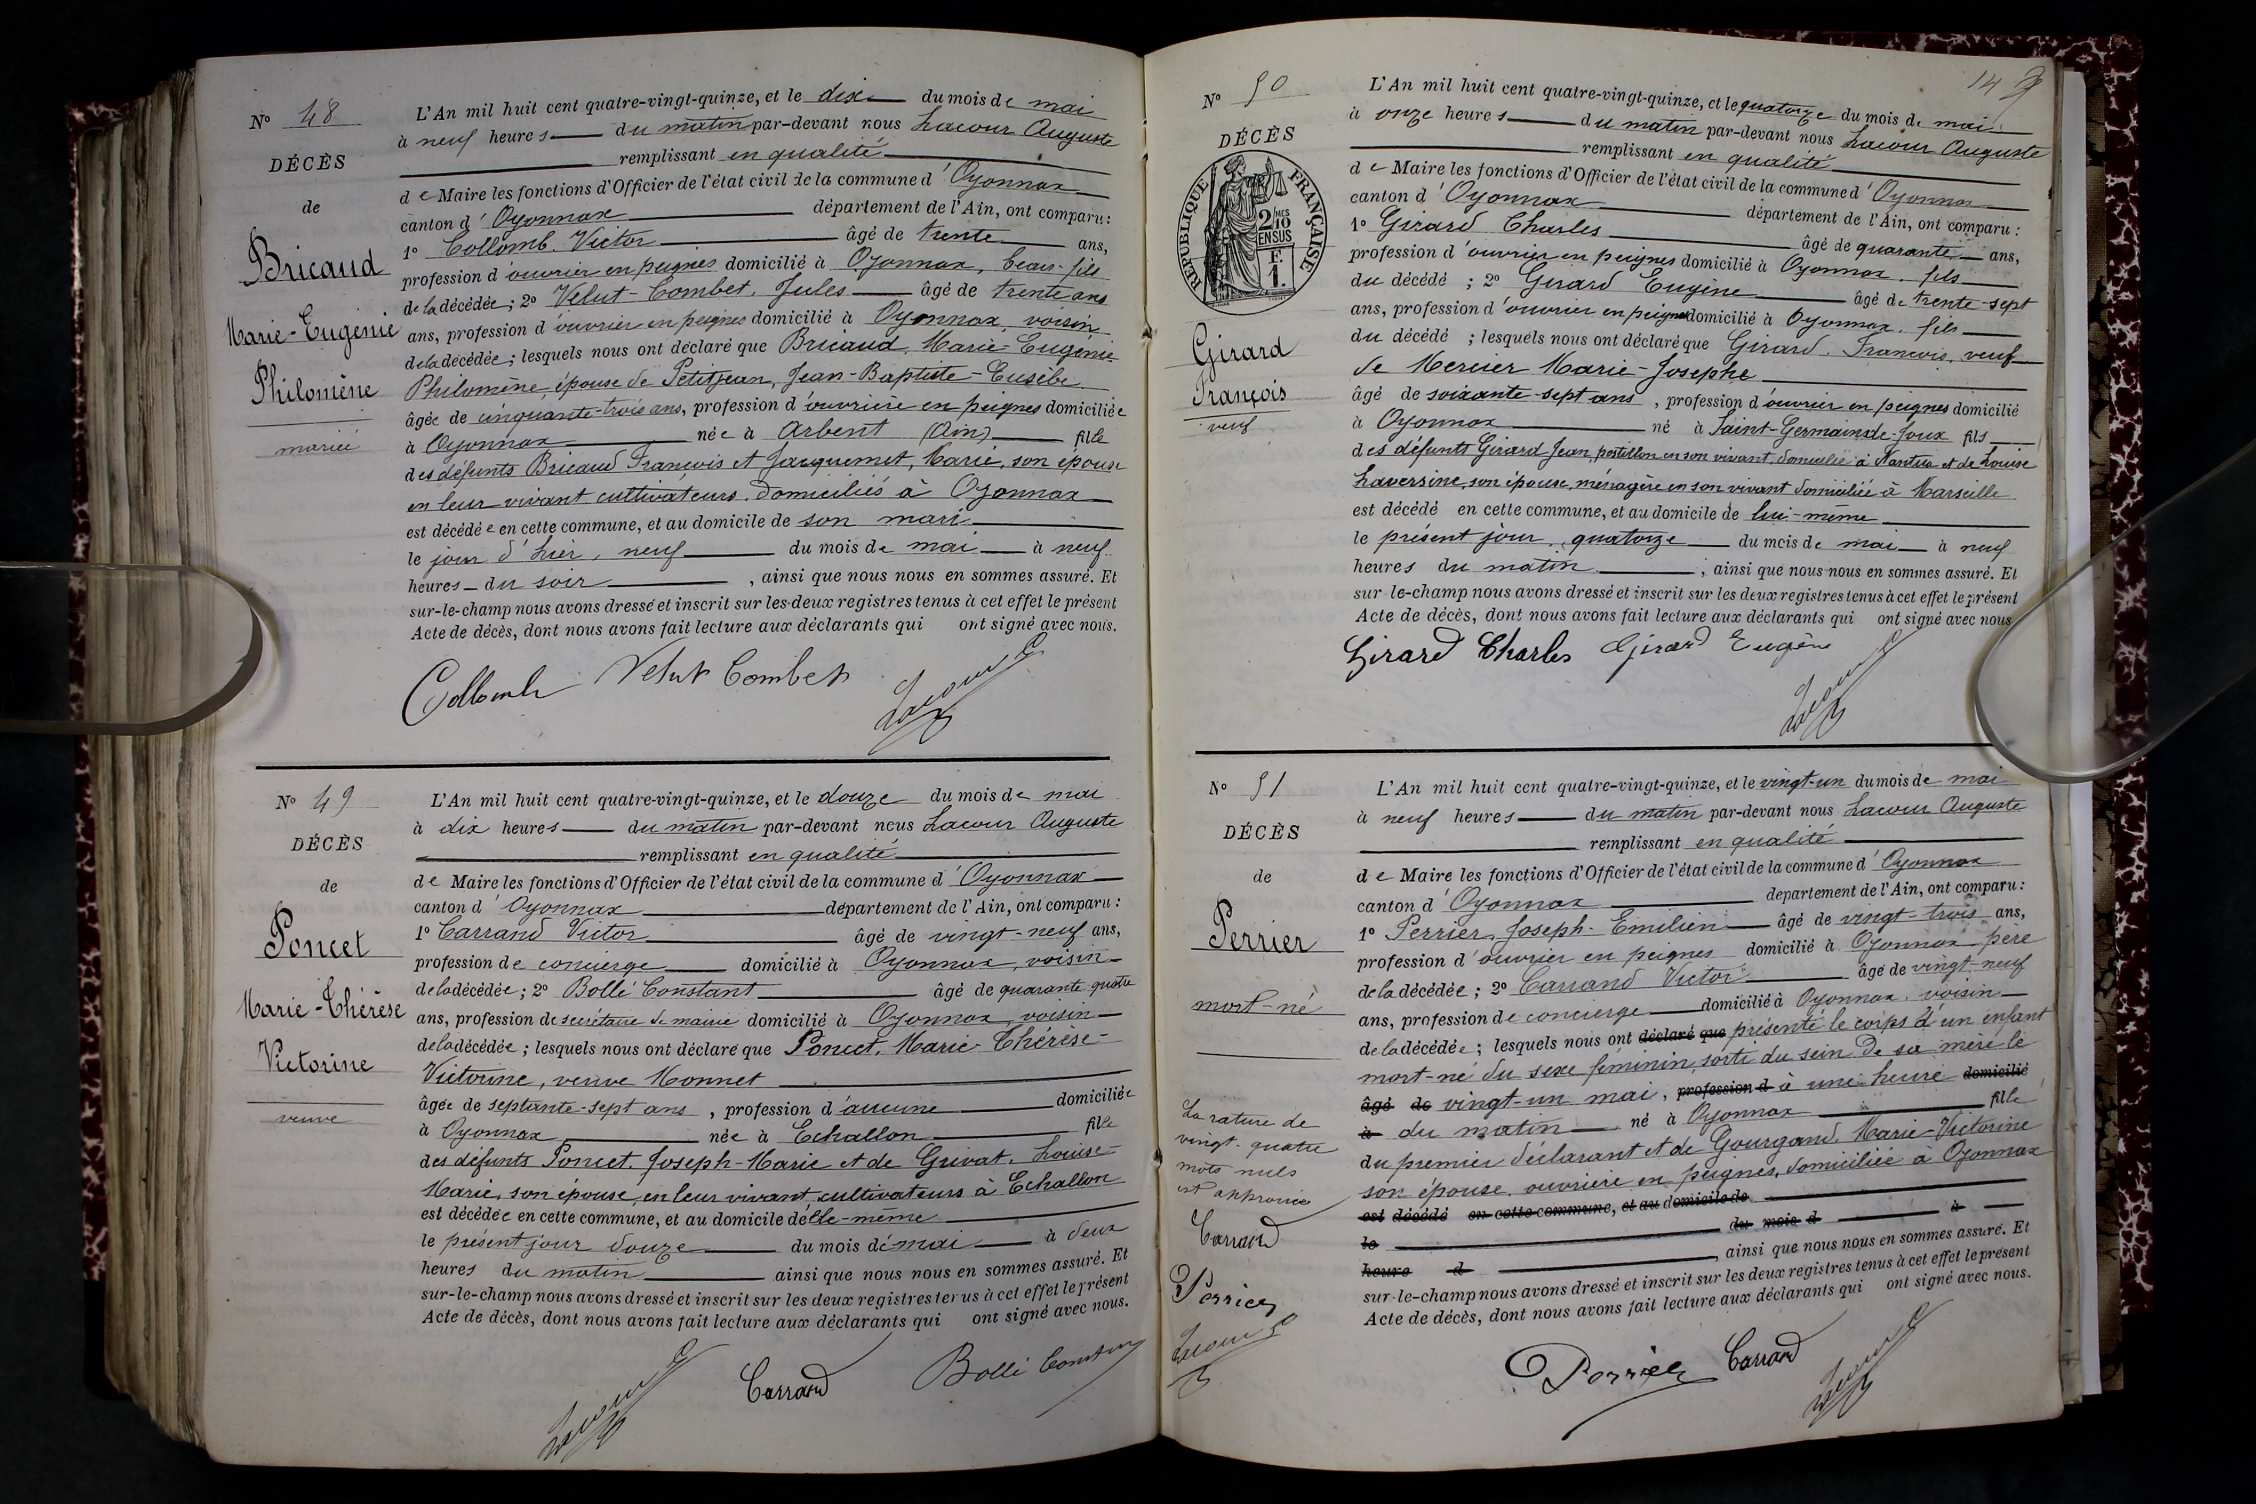 N° 48
DÉCÈS
de
Bricaud
Marie-Eugénie
Philomène
mariée
L'An mil huit cent quatre-vingt-quinze, et le dix du mois de mai
à neuf heures du matin par-devant nous Lacour Auguste
remplissant en qualité
de Maire les fonctions d'Officier de l'état civil de la commune d'Oyonnax
canton d'Oyonnax département de l'Ain, ont comparu :
1° Collomb Victor âgé de trente ans,
profession d'ouvrier en peignes domicilié à Oyonnax, beau-fils
de la décédée ; 2° Velut-Combet, Jules âgé de trente ans
ans, profession d'ouvrier en peignes domicilié à Oyonnax, voisin
de la décédée ; lesquels nous ont déclaré que Bricaud, Marie-Eugénie
Philomène, épouse de Petitjean, Jean-Baptiste-Eusèbe
âgée de cinquante-trois ans, profession d'ouvrière en peignes domiciliée
à Oyonnax née à Arbent (Ain) fille
des défunts Bricaud François et Jacquemet, Marie, son épouse
en leur vivant cultivateurs, domiciliés à Oyonnax
est décédée en cette commune, et au domicile de son mari
le jour d'hier, neuf du mois de mai à neuf
heures du soir, ainsi que nous nous en sommes assuré. Et
sur-le-champ nous avons dressé et inscrit sur les deux registres tenus à cet effet le présent
Acte de décès, dont nous avons fait lecture aux déclarants qui ont signé avec nous.
Collomb Velut Combet Lacour
N° 49
DÉCÈS
de
Poncet
Marie-Thérèse
Victorine
veuve
L'An mil huit cent quatre-vingt-quinze, et le douze du mois de mai
à dix heures du matin par-devant nous Lacour Auguste
remplissant en qualité
de Maire les fonctions d'Officier de l'état civil de la commune d'Oyonnax
canton d'Oyonnax département de l'Ain, ont comparu :
1° Carrand Victor âgé de vingt-neuf ans,
profession de concierge domicilié à Oyonnax, voisin
de la décédée ; 2° Bollé Constant âgé de quarante-quatre
ans, profession de secrétaire de mairie domicilié à Oyonnax, voisin
de la décédée ; lesquels nous ont déclaré que Poncet, Marie-Thérèse-
Victorine, veuve Monnet
âgée de septante-sept ans, profession d'aucune domiciliée
à Oyonnax née à Echallon fille
des défunts Poncet, Joseph-Marie et de Grivat, Louise-
Marie, son épouse, en leur vivant cultivateurs à Echallon
est décédée en cette commune, et au domicile d'elle-même
le présent jour douze du mois de mai à deux
heures du matin ainsi que nous nous en sommes assuré. Et
sur-le-champ nous avons dressé et inscrit sur les deux registres tenus à cet effet le présent
Acte de décès, dont nous avons fait lecture aux déclarants qui ont signé avec nous.
Lacour Carrand Bollé Constant
14
N° 50
DÉCÈS
RÉPUBLIQUE FRANÇAISE
2/10 MES
EN SUS
F.
1.
Girard
François
veuf
L'An mil huit cent quatre-vingt-quinze, et le quatorze du mois de mai
à onze heures du matin par-devant nous Lacour Auguste
remplissant en qualité
de Maire les fonctions d'Officier de l'état civil de la commune d'Oyonnax
canton d'Oyonnax département de l'Ain, ont comparu :
1° Girard Charles âgé de quarante ans,
profession d'ouvrier en peignes domicilié à Oyonnax, fils
du décédé ; 2° Girard Eugène âgé de trente-sept
ans, profession d'ouvrier en peignes domicilié à Oyonnax, fils
du décédé ; lesquels nous ont déclaré que Girard, François, veuf
de Mercier Marie-Josephe
âgé de soixante-sept ans, profession d'ouvrier en peignes domicilié
à Oyonnax né à Saint-Germain-de-Joux fils
des défunts Girard Jean, postillon en son vivant, domicilié à Nantua et de Louise
Laverrine, son épouse, ménagère en son vivant domiciliée à Marseille
est décédé en cette commune, et au domicile de lui-même
le présent jour, quatorze du mois de mai à neuf
heures du matin, ainsi que nous nous en sommes assuré. Et
sur-le-champ nous avons dressé et inscrit sur les deux registres tenus à cet effet le présent
Acte de décès, dont nous avons fait lecture aux déclarants qui ont signé avec nous
Girard Charles Girard Eugène Lacour
N° 51
DÉCÈS
de
Perrier
mort-né
La rature de
vingt-quatre
mots nuls
est approuvée
Carrand
Perrier
Lacour
L'An mil huit cent quatre-vingt-quinze, et le vingt-un du mois de mai
à neuf heures du matin par-devant nous Lacour Auguste
remplissant en qualité
de Maire les fonctions d'Officier de l'état civil de la commune d'Oyonnax
canton d'Oyonnax département de l'Ain, ont comparu :
1° Perrier, Joseph-Emilien âgé de vingt-trois ans,
profession d'ouvrier en peignes domicilié à Oyonnax père
de la décédée ; 2° Carrand Victor âgé de vingt-neuf
ans, profession de concierge domicilié à Oyonnax, voisin
de la décédée ; lesquels nous ont déclaré que présenté le corps d'un enfant
mort-né du sexe féminin, sorti du sein de sa mère le
âgé de vingt-un mai, profession d à une heure domicilié
à du matin né à Oyonnax fille
du premier déclarant et de Gourgand, Marie-Victorine
son épouse, ouvrière en peignes, domiciliée à Oyonnax
est décédé en cette commune, et au domicile de
le du mois d à
heure d, ainsi que nous nous en sommes assuré. Et
sur-le-champ nous avons dressé et inscrit sur les deux registres tenus à cet effet le présent
Acte de décès, dont nous avons fait lecture aux déclarants qui ont signé avec nous.
Perrier Carrand Lacour